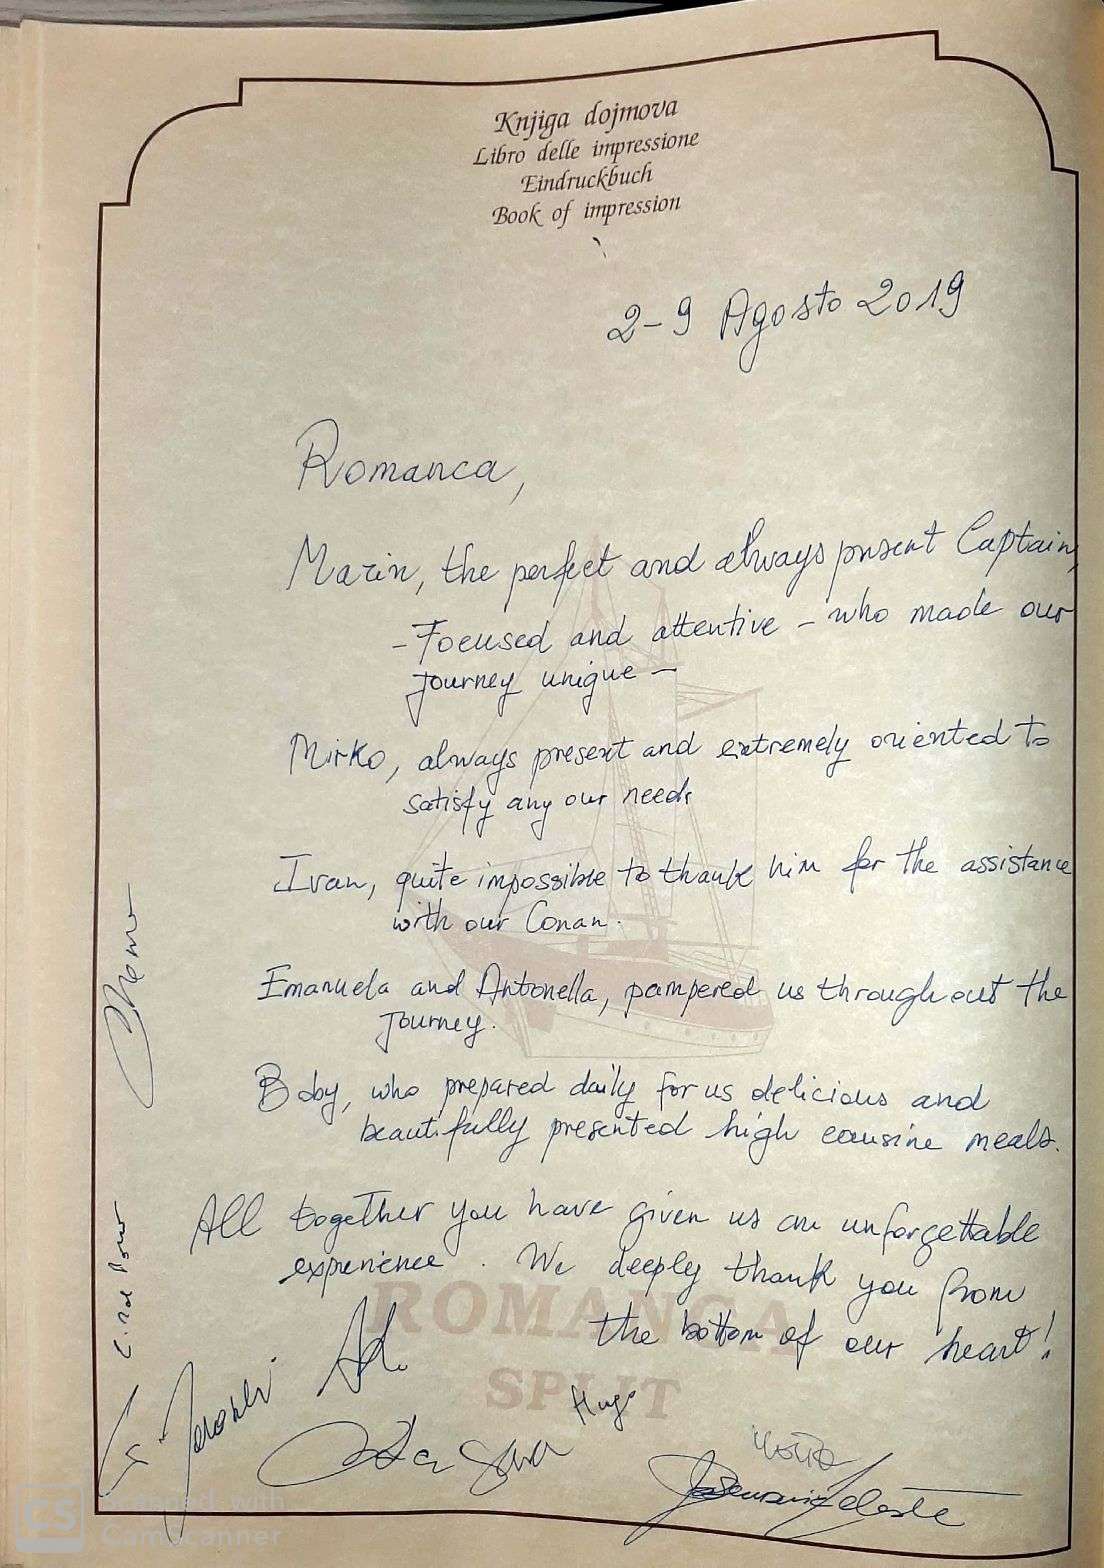 Knjiga dojmova
Libro delle impressione
Eindruckbuch
Book of impression
2-9 Agosto 2019
Romanca,
Marin, the perfect and always present Captain,
- Focused and attentive - who made our
journey unique -
Mirko, always present and extremely oriented to
satisfy any our needs
Ivan, quite impossible to thank him for the assistance
with our Conan.
Emanuela and Antonella, pampered us throughout the
journey.
Boby, who prepared daily for us delicious and
beautifully presented high cousine meals.
All together you have given us an unforgettable
experience. We deeply thank you from
the bottom of our heart!
ROMANCA
SPLIT
Hugo
CS Scanned with
CamScanner